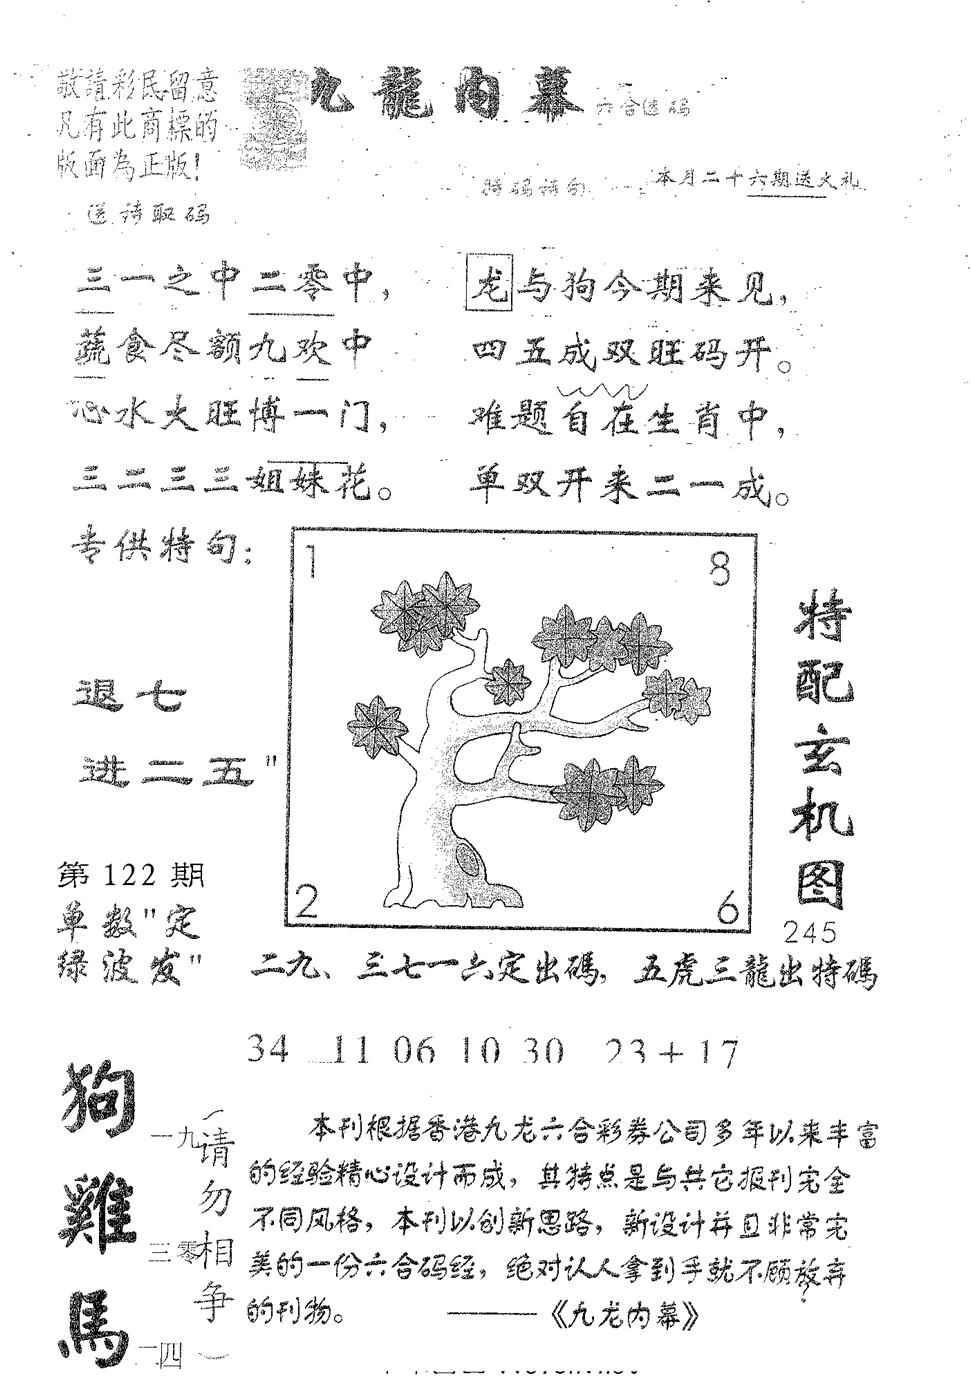 敬請彩民留意
凡有此商標的
版面為正版!
九龍内幕
六合选码
特码诗句
本月二十六期送大礼
送诗取码
三一之中二零中，
蔬食尽额九欢中
心水大旺博一门，
三二三三姐妹花。
龙与狗今期来见，
四五成双旺码开。
难题自在生肖中，
单双开来二一成。
专供特句：
退七
进二五"
1
8
2
6
特配玄机图
245
第122期
单数"定
绿波发"
二九、三七一六定出碼，五虎三龍出特碼
34 11 06 10 30 23+17
狗
一九
雞
三零
馬
二四
（请勿相争）
本刊根据香港九龙六合彩券公司多年以来丰富
的经验精心设计而成，其特点是与其它报刊完全
不同风格，本刊以创新思路，新设计并且非常完
美的一份六合码经，绝对认人拿到手就不顾放弃
的刊物。 ———《九龙内幕》